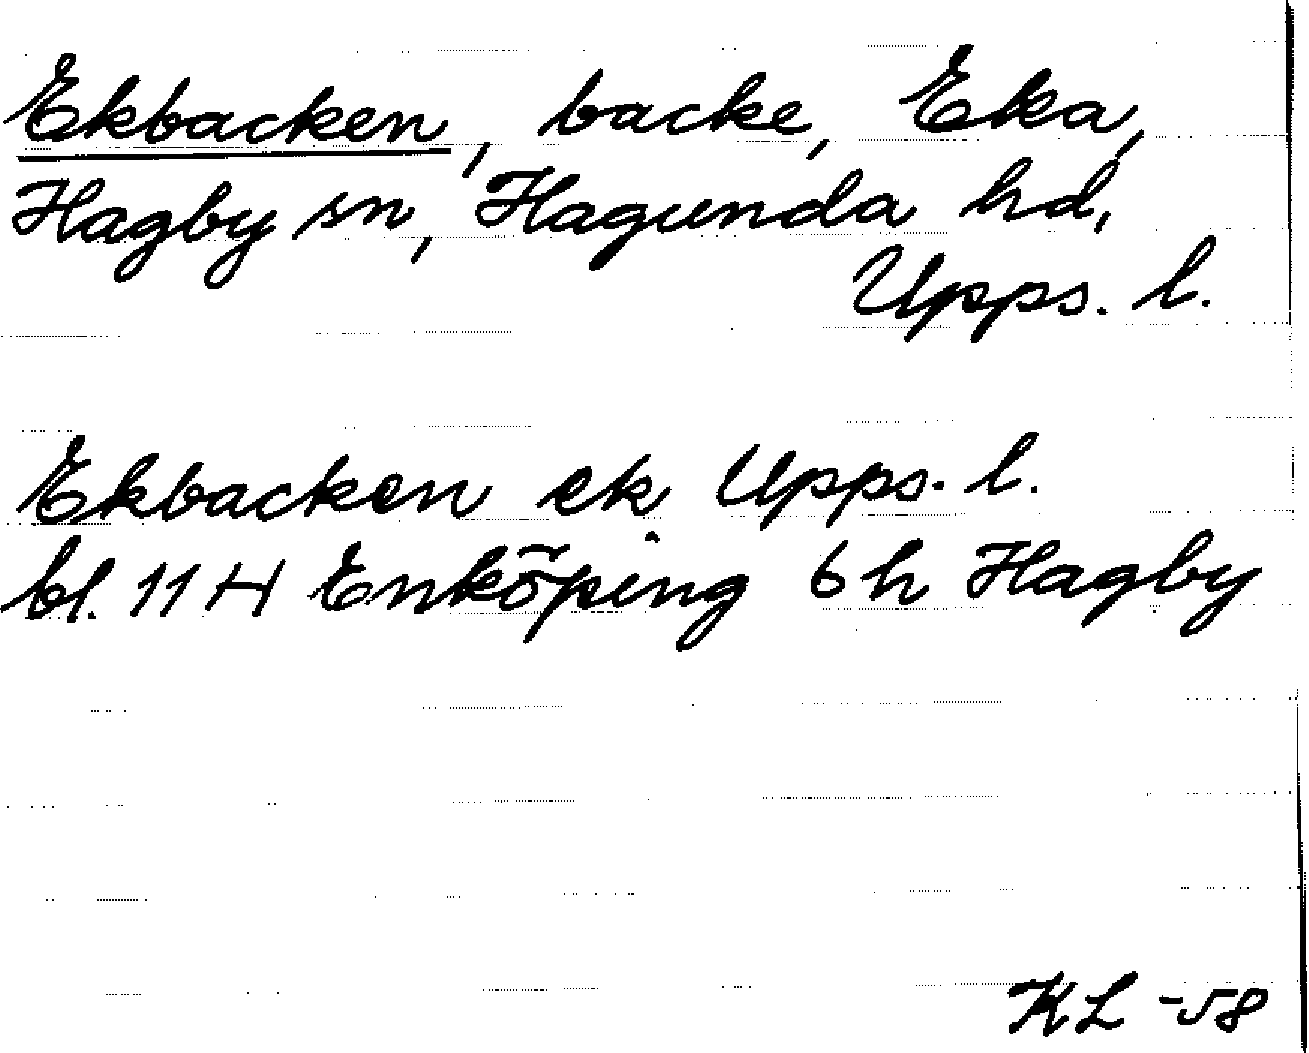 Ekbacken, backe, Eka,
Hagby sn, Hagunda hd,
Upps. l.
Ekbacken ek. Upps. l.
bl. 11 H Enköping 6 h Hagby
KL -58